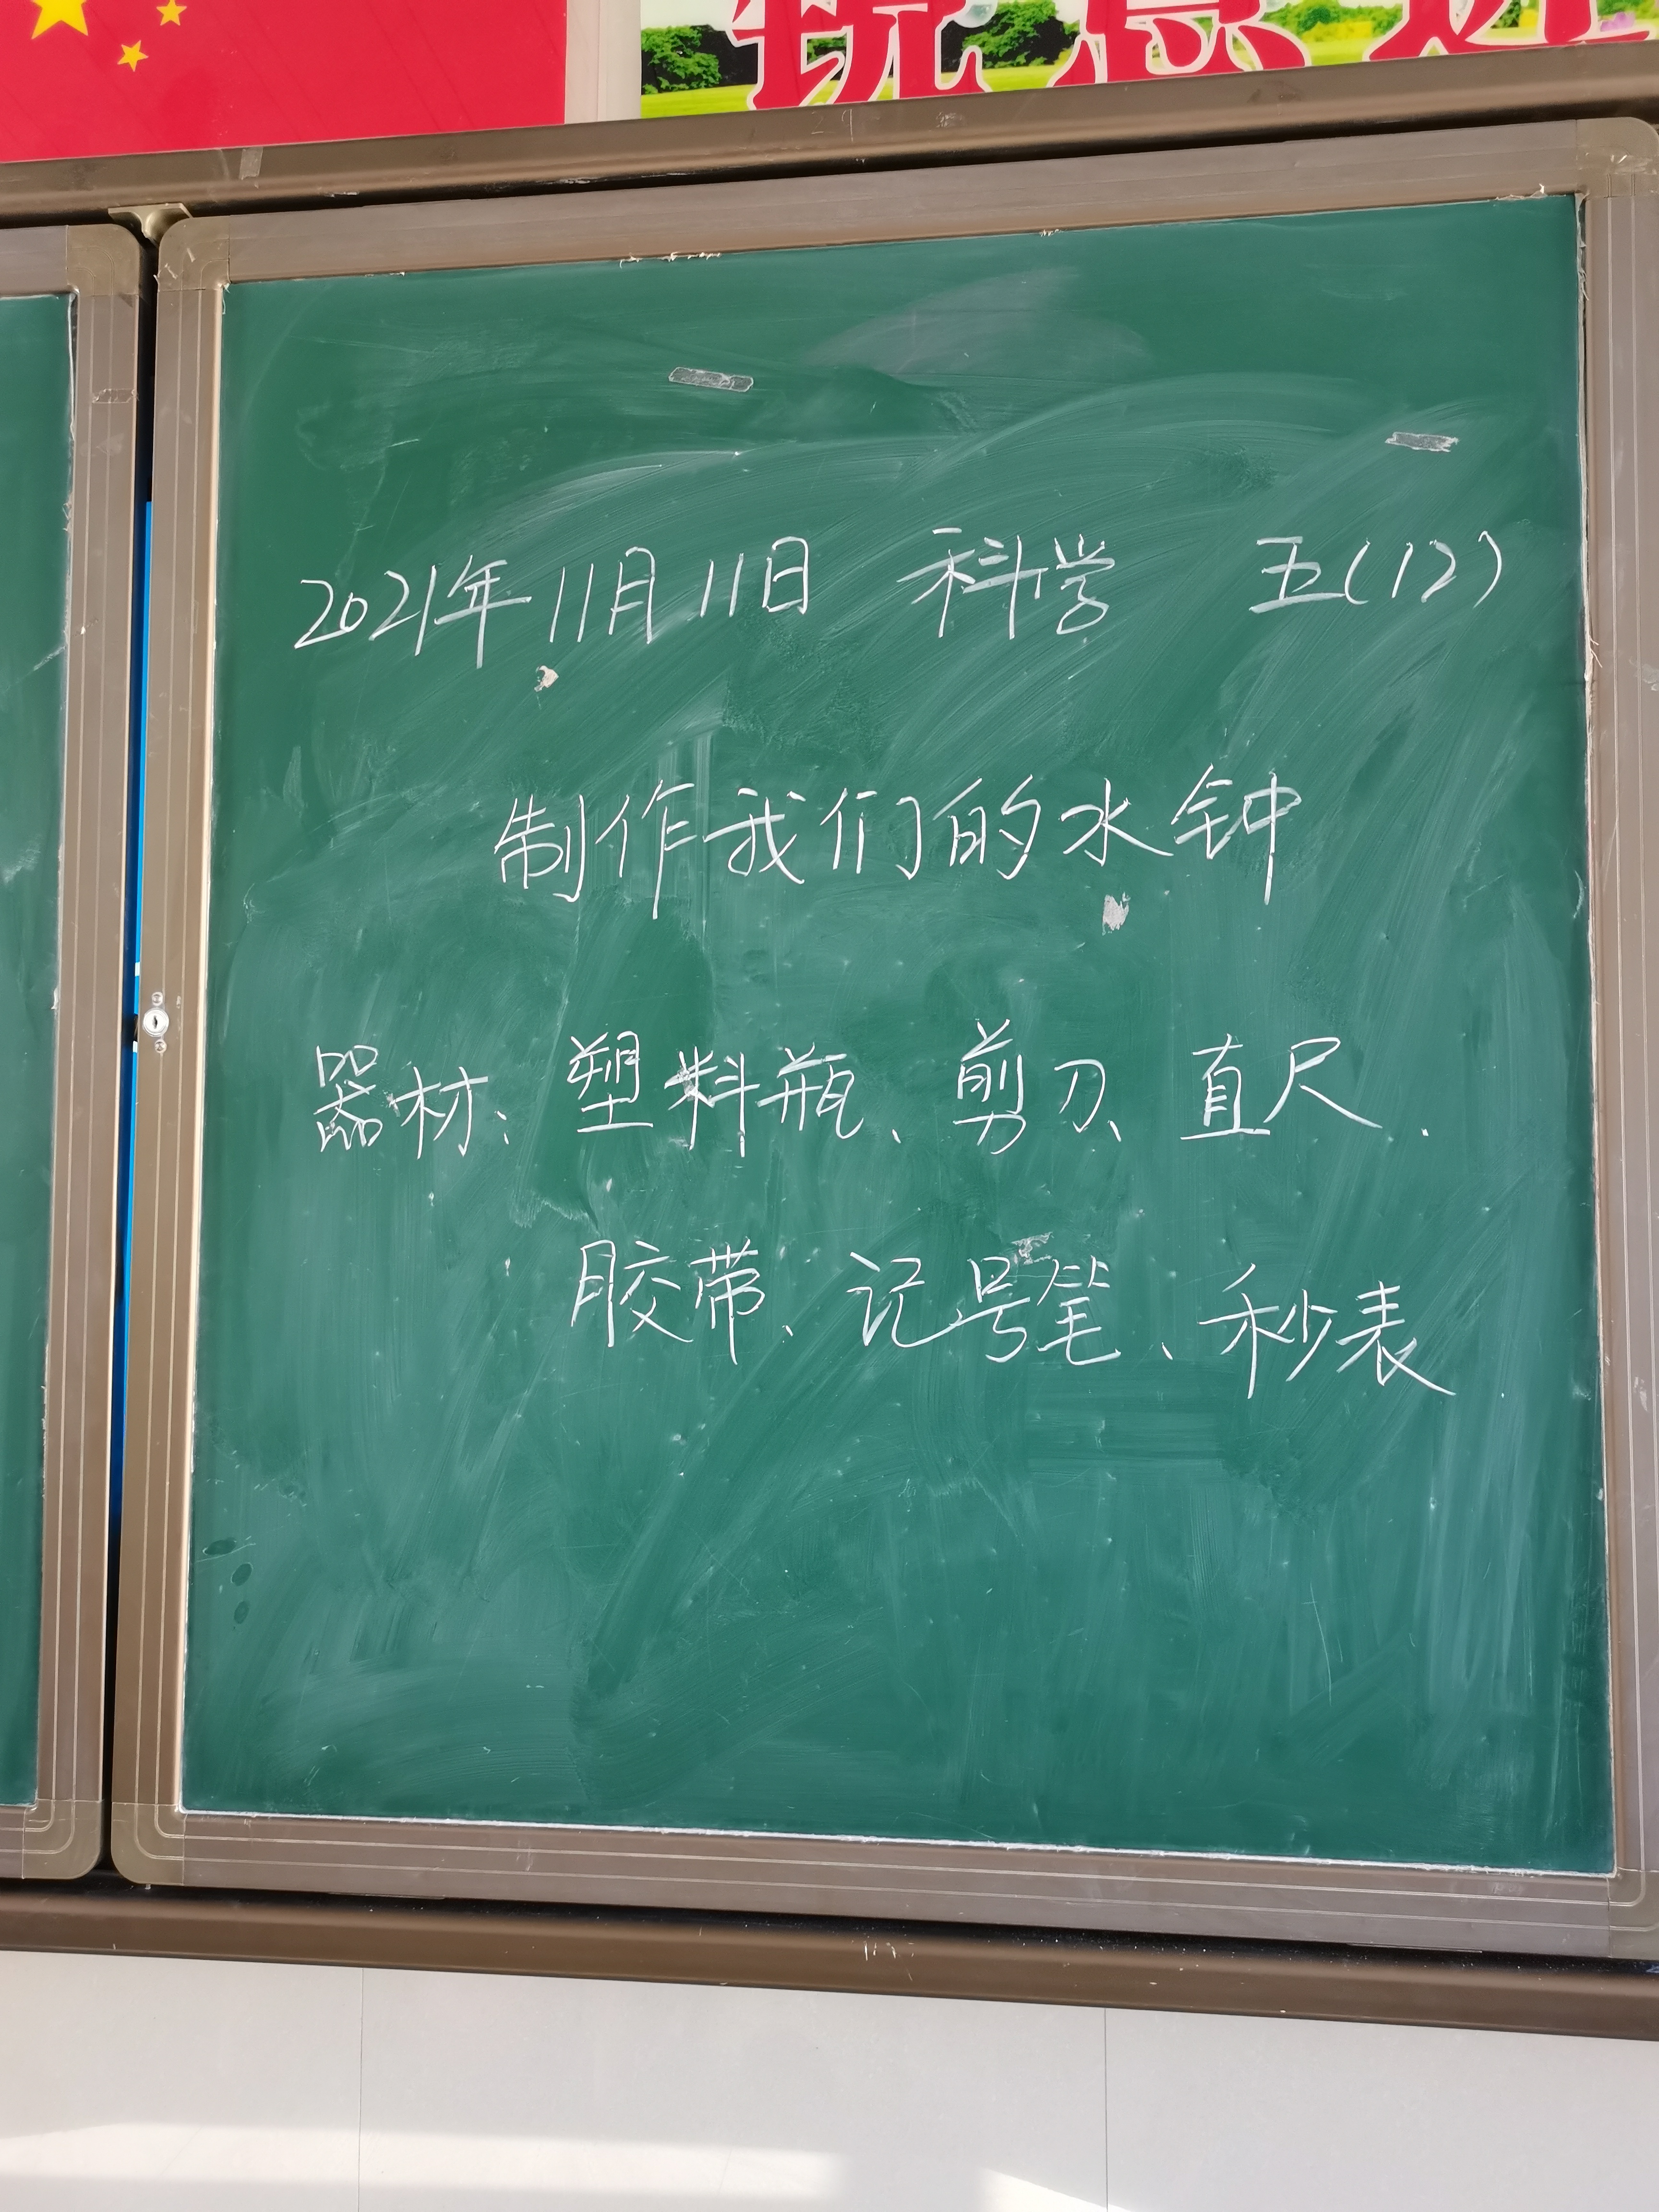 2021年11月11日 科学 五(12)
制作我们的水钟
器材:塑料瓶、剪刀、直尺、
胶带、记号笔、秒表